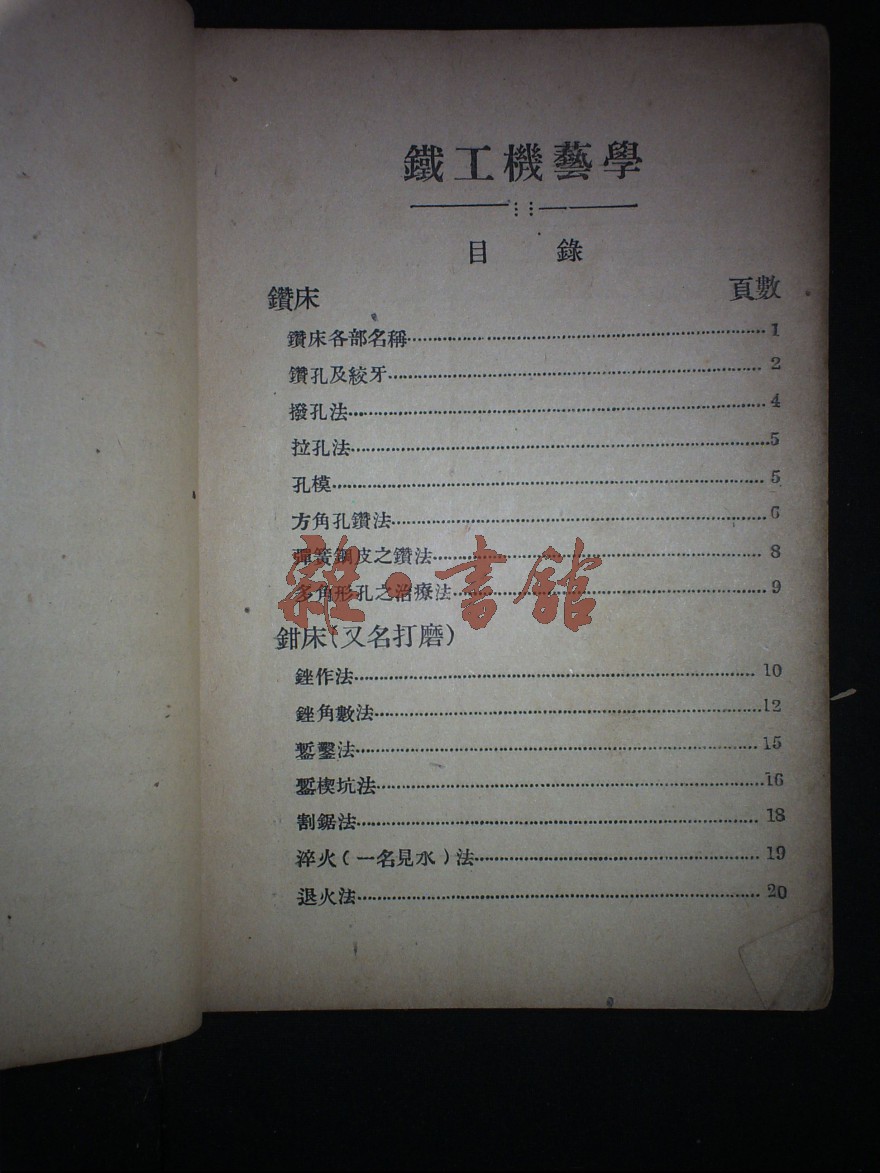 鐵工機藝學
目 錄
鑽床 頁數
鑽床各部名稱 1
鑽孔及絞牙 2
撥孔法 4
拉孔法 5
孔模 5
方角孔鑽法 6
彈簧鋼皮之鑽法 8
多角形孔之治療法 9
雜·書館
鉗床(又名打磨)
銼作法 10
銼角數法 12
鏨鑿法 15
鏨楔坑法 16
割鋸法 18
淬火(一名見水)法 19
退火法 20